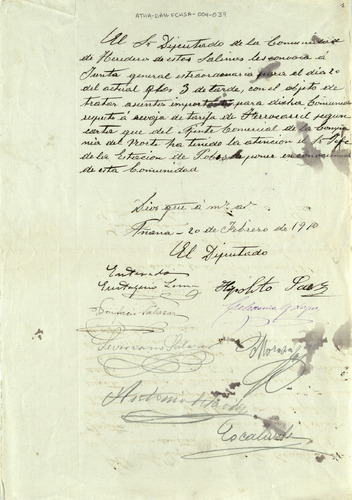 ATHA-DAH-FCHSA-004-039
El Sr Diputado de la Comunidad
de Herederos de estas Salinas les convoca á
Junta general extraordinaria para el dia 20
del actual á las 3 de tarde, con el objeto de
tratar asuntos importantes para dicha Comunidad
respecto á rebaja de tarifa de Ferrocarril segun
carta que del Agente Comercial de la Compa
ñia del Norte ha tenido la atencion el Sr Jefe
de la Estacion de Pobes de poner en conocimiento
de esta Comunidad
Dios gue á m. as.
Añana - 20 de Febrero de 1910
El Diputado
Enterado
Hipolito Saez
Dionisio Salazar
Severiano Salazar
Escalante